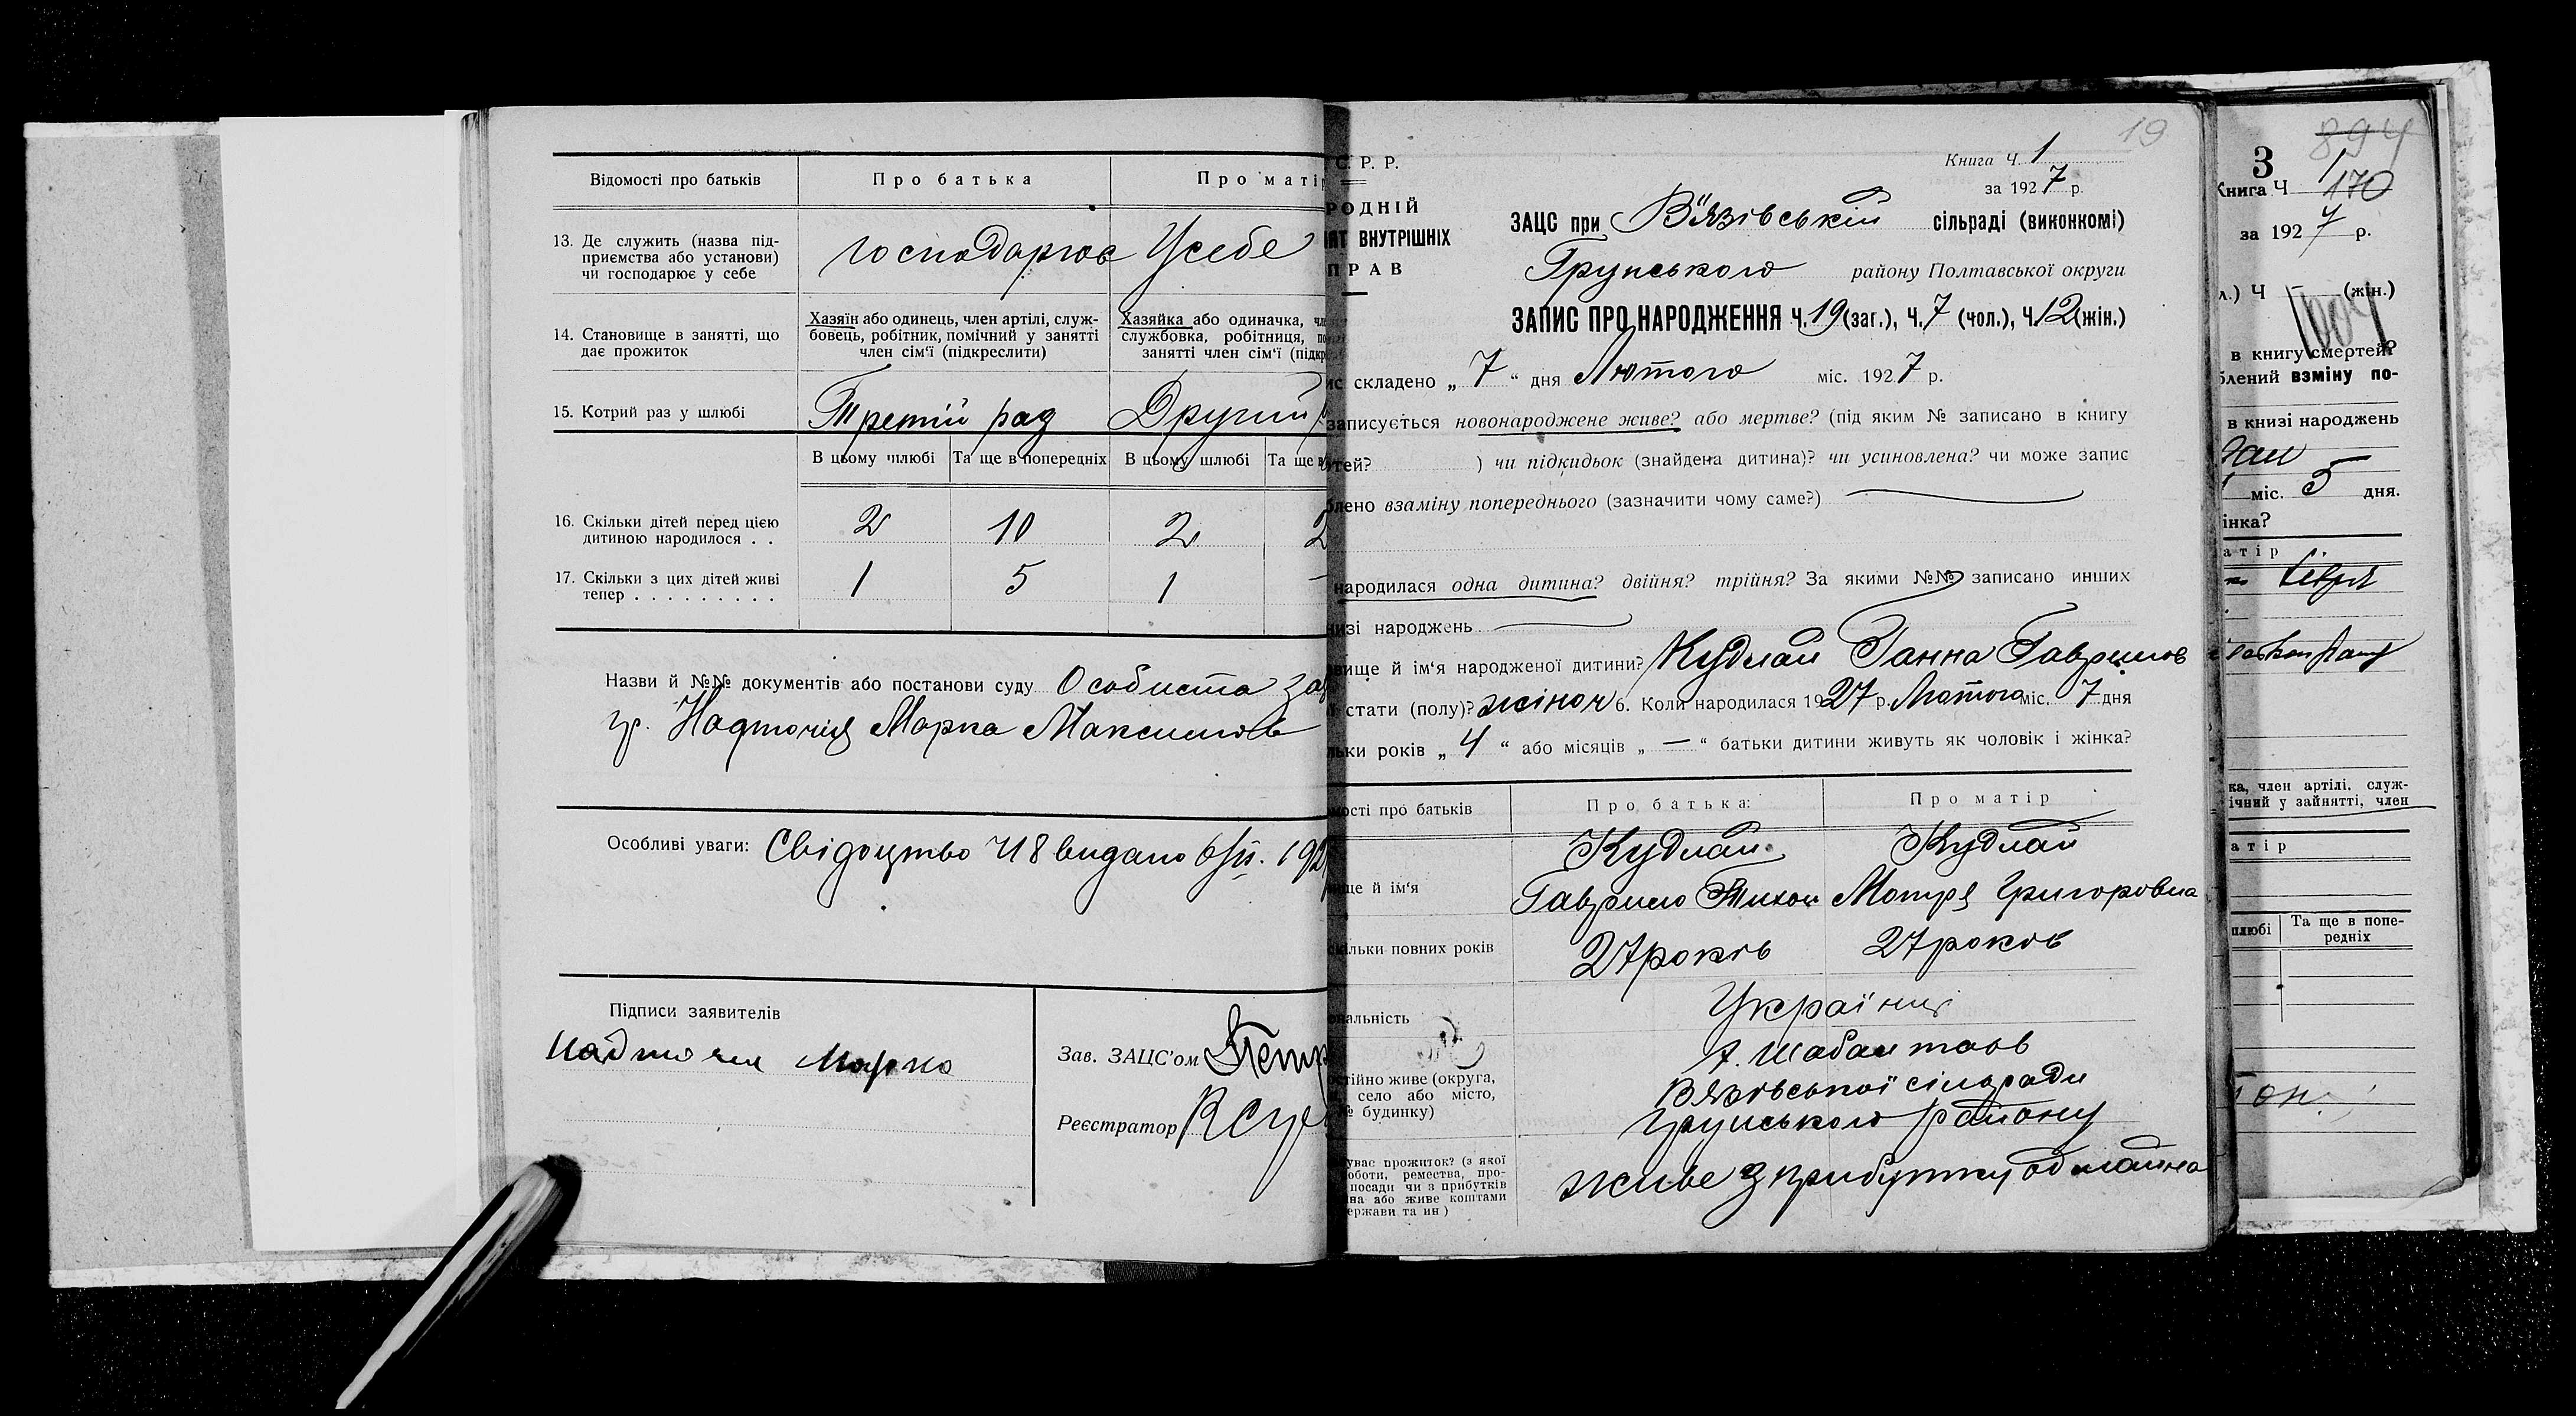 Відомості про батьків Про батька Про матір
13. Де служить (назва під-
приємства або установи)
чи господарює у себе
господарює Усебе
14. Становище в занятті, що
дає прожиток
Хазяїн або одинець, член артілі, служ-
бовець, робітник, помічний у занятті
член сім'ї (підкреслити)
Хазяйка або одиначка,
службовка, робітниця,
занятті член сім'ї
15. Котрий раз у шлюбі Третій раз Другий
В цьому шлюбі Та ще в попередніх В цьому шлюбі Та ще
16. Скільки дітей перед цією
дитиною народилося . . 2 10 2 2
17. Скільки з цих дітей живі
тепер . . . . . . . . . 1 5 1 –
Назви й №№ документів або постанови суду Особиста
гр. Надточія Марка Максимов
Особливі уваги: Свідоцтво Ч 8 видано 6/II. 192
Підписи заявителів
Надточия Марко
Зав. ЗАЦС'ом
Реєстратор
19
С. Р. Р.
Книга Ч. 1
за 1927 р.
РОДНІЙ
ВНУТРІШНІХ
ПРАВ
ЗАЦС при Вʼязівській сільраді (виконкомі)
Грунського району Полтавської округи
ЗАПИС ПРО НАРОДЖЕННЯ Ч. 19 (заг.), Ч. 7 (чол.), Ч. 12 (жін.)
складено „ 7 “ дня Лютого міс. 1927 р.
записується новонароджене живе? або мертве? (під яким № записано в книгу
тей? ) чи підкидьок (знайдена дитина)? чи усиновлена? чи може запис
блено взаміну попереднього (зазначити чому саме?)
народилася одна дитина? двійня? трійня? За якими №№ записано инших
изі народжень
вище й ім'я народженої дитини? Кудлай Ганна Гаврилов
стати (полу)? жіноч 6. Коли народилася 1927 р. Лютого міс. 7 дня
льки років „ 4 “ або місяців „ — “ батьки дитини живуть як чоловік і жінка?
мості про батьків Про батька: Про матір
Кудлай Кудлай
ще й ім'я Гаврило Тихон Мотря Григоровна
кільки повних років 27 років 27 років
нальність Українці
х. Шабалтаїв
тійно живе (округа,
село або місто,
№ будинку)
Вязівської сілради
Грунського району
ував прожиток? (з якої
оботи, ремества, про-
посади чи з прибутків
на або живе коштами
ержави та ин)
живе з прибутку од майна
894
3 1
Книга Ч 170
за 1927 р.
л.) Ч (жін.)
в книгу смертей?
блений взміну по-
в книзі народжень
міс. 5 дня.
інка?
атір
ка, член артілі, служ-
ічний у зайнятті, член
атір
шлюбі Та ще в попе-
редніх